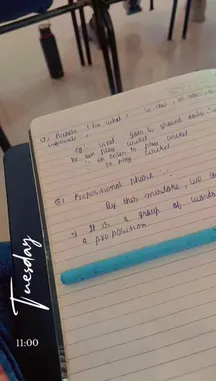 Q) Purpose (for what)
eg: Virat goes to ground daily
he can play cricket
in order to play cricket
to play cricket
Q) Prepositional phrase :-
By this mistake, we
It is a group of words
a preposition
Tuesday
11:00